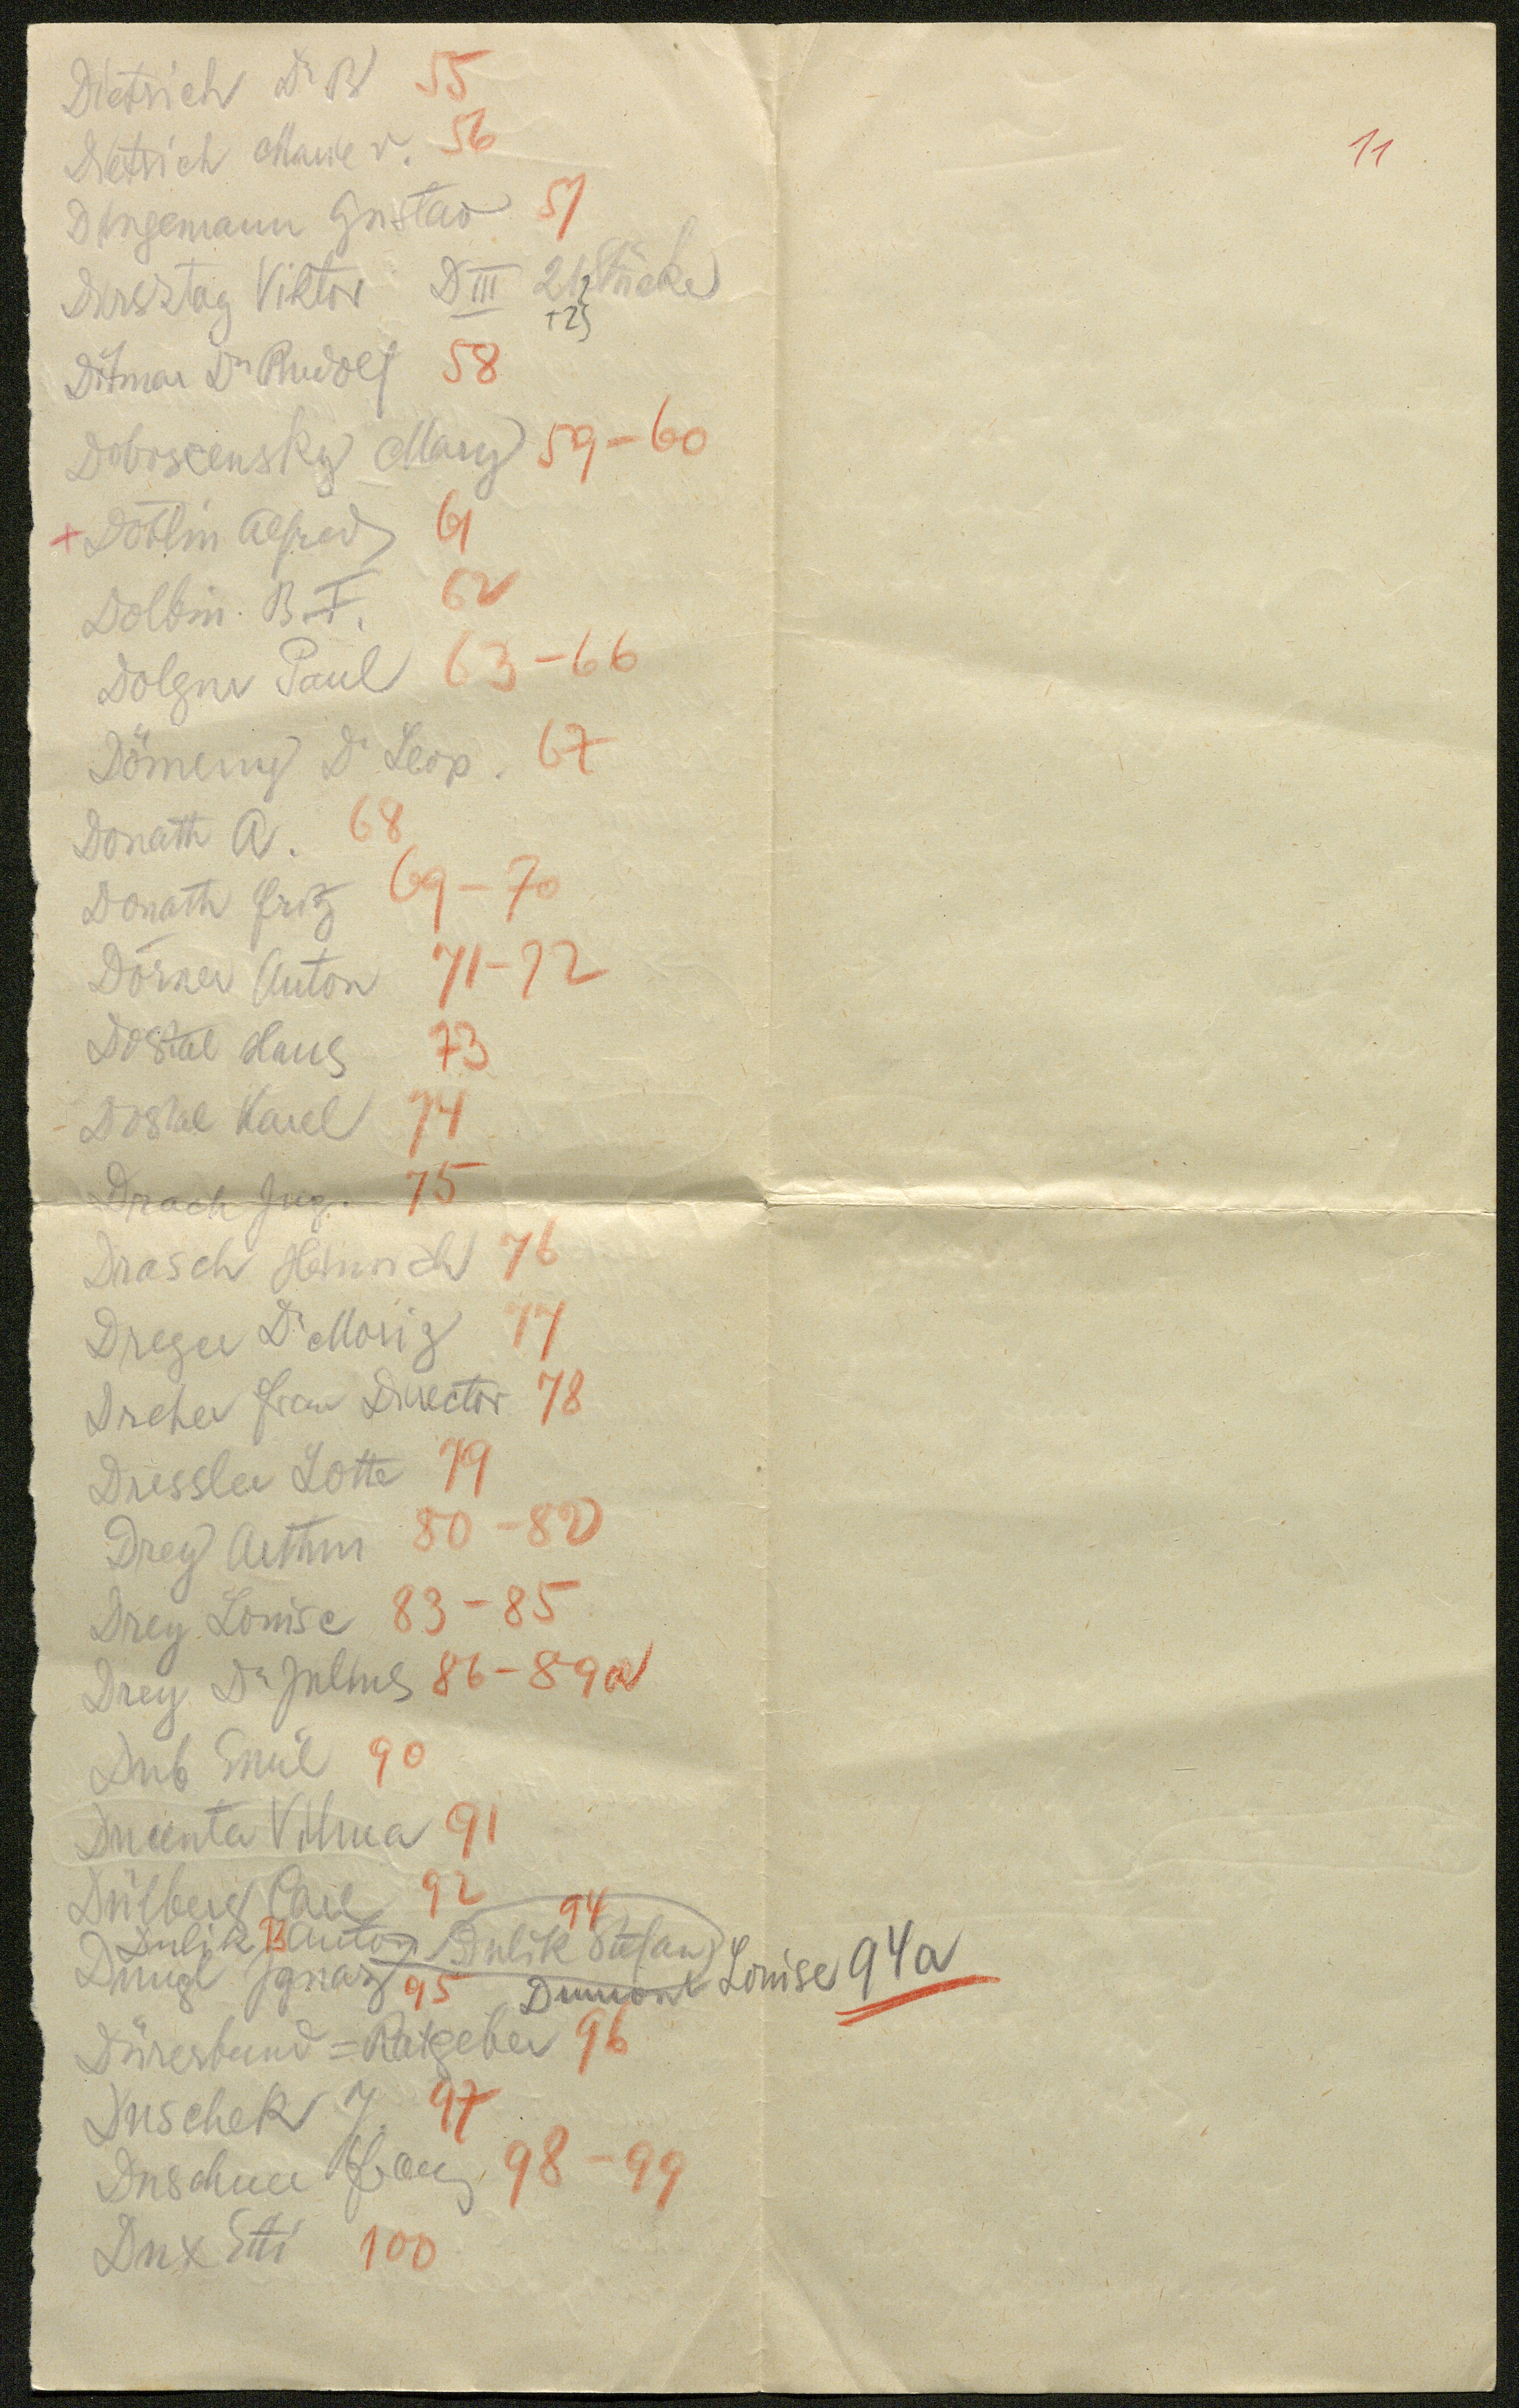 Dietrich Dr B 55
Dietrich Marie v. 56
11
Dingemann Gustav 57
Dirsztag Viktor D III 21 Stücke
+25
Ditmar Dr Rudolf 58
Doboscensky Mary 59-60
+ Döblin Alfred 61
Dolbin B.F. 62
Dolgner Paul 63-66
Dömeny Dr Leop. 67
Donath A. 68
Donath Fritz 69-70
Dörner Anton 71-72
Dostal Hans 73
Dostal Karel 74
Drach Ing. 75
Drasch Heinrich 76
Dreger Dr Moriz 77
Dreher Frau Director 78
Dressler Lotte 79
Drey Arthur 80-82
Drey Louise 83-85
Drey Dr Julius 86-89a
Dub Emil 90
Vilma 91
Dülberg Carl 92
Dulik Anton Dulik Stefan 94
Dumont Louise 94a
Dungl Ignaz 95
Dürerbund=Ratgeber 96
Duschek J. 97
Duschner Franz 98-99
Dux Etti 100